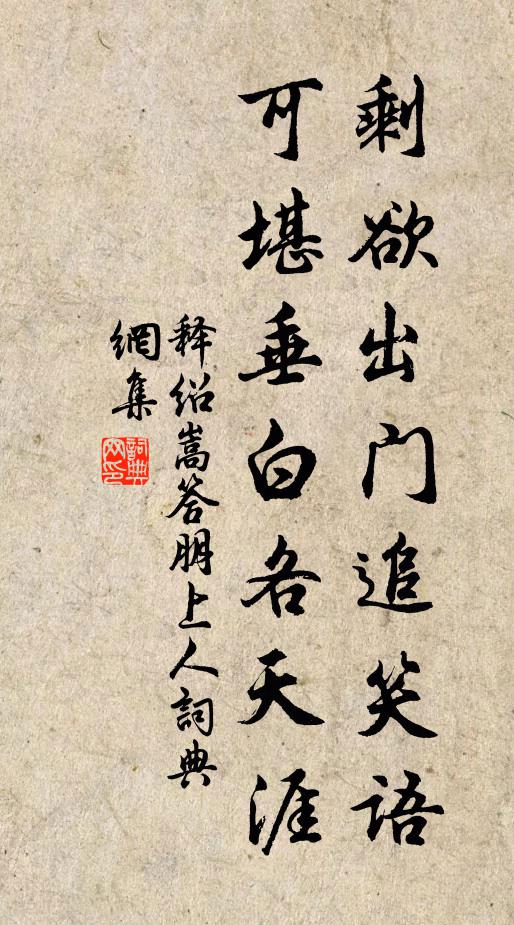 剩欲出门追笑语
可堪垂白各天涯
释绍嵩答朋上人詞典
網集
詞典
网印